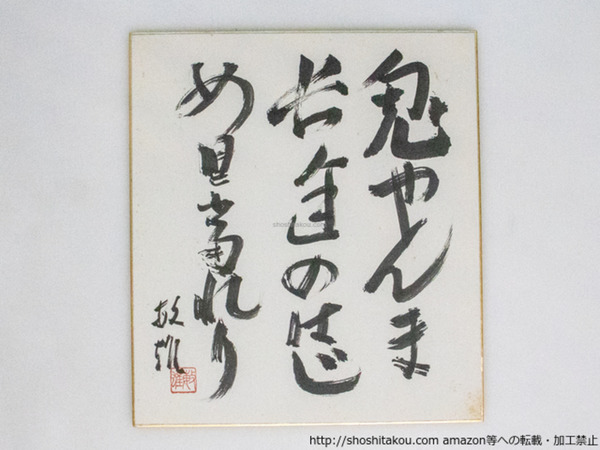 鬼やんま
長途のはじ
め日當れり
敏雄
shoshitakou.com
http://shoshitakou.com amazon等への転載・加工禁止